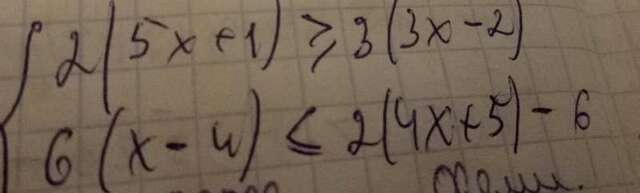 2(5x+1) ≥ 3(3x-2)
6(x-4) ≤ 2(4x+5)-6